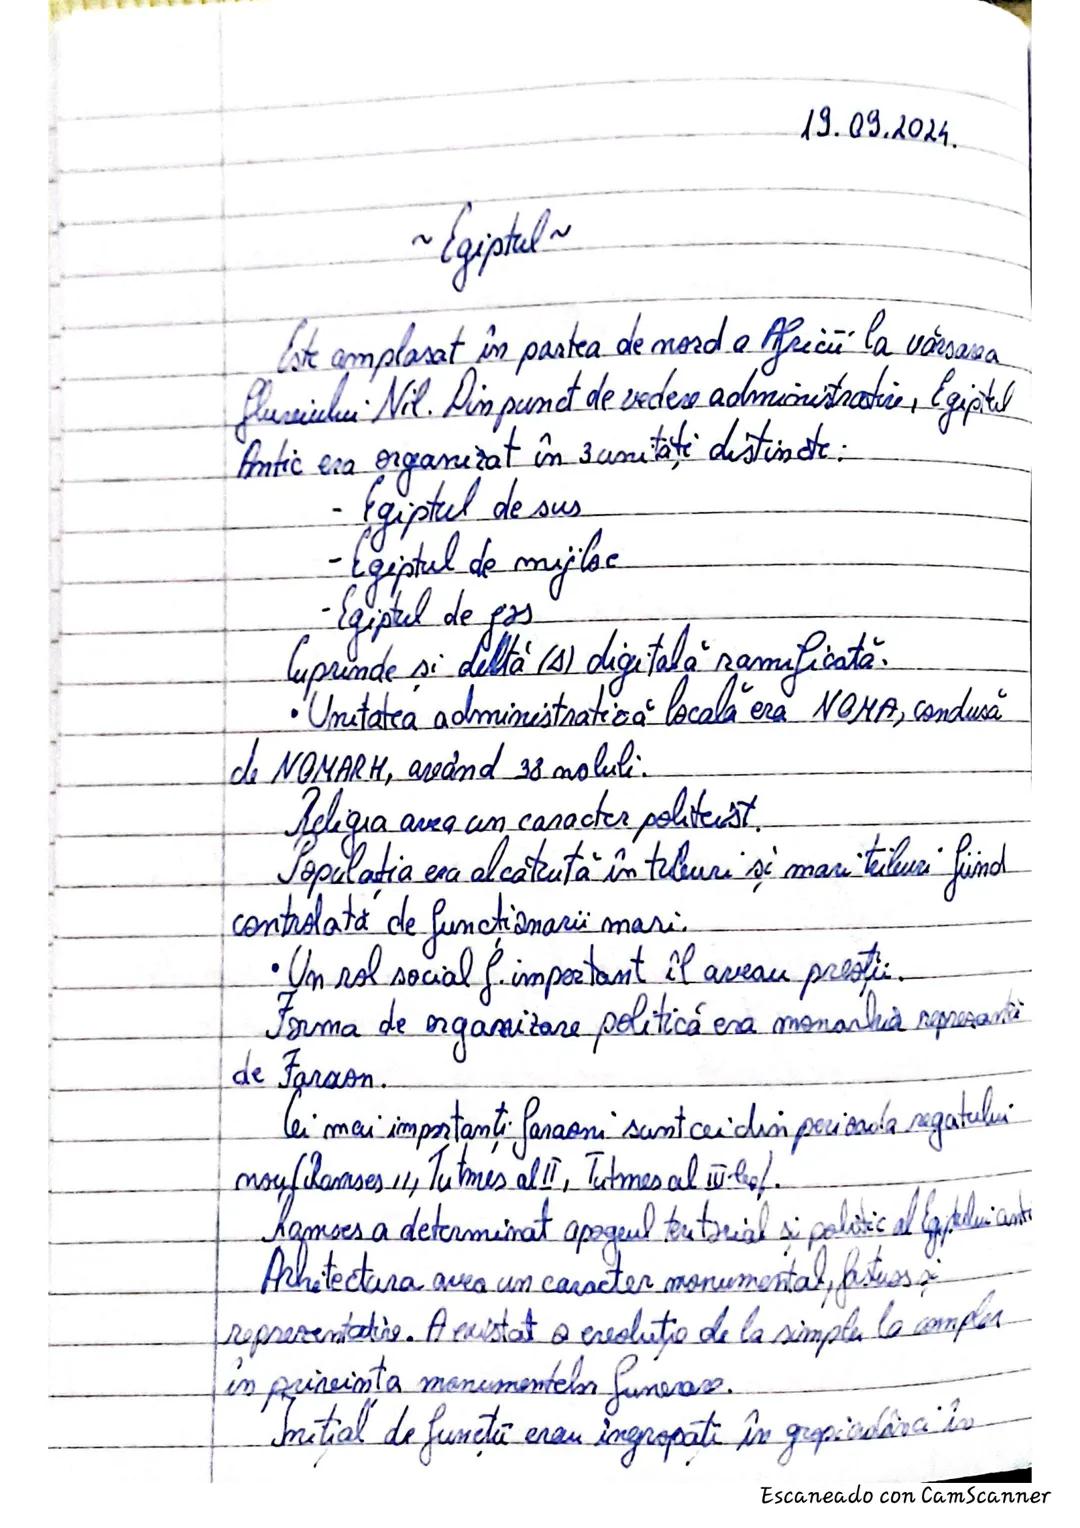 19.09.2024.
~Egiptul~
Este amplasat în partea de nord a Africii la vărsarea
fluviului Nil. Din punct de vedere administrativ, Egiptul
Antic era organizat în 3 unități distincte:
- Egiptul de sus
- Egiptul de mijloc
- Egiptul de gos
Cuprinde și deltă (Δ) digitală ramificată.
• Unitatea administrativă locală era NOMA, condusă
de NOMARH, având 38 moluli.
Religia avea un caracter politeist.
Populația era alcătuită în triburi și mari triburi fiind
controlată de funcționarii mari.
• Un rol social f. important îl aveau preoții.
Forma de organizare politică era monarhia
de Faraon.
Cei mai importanți faraoni sunt cei din perioada regatului
nou (Ramses II, Tutmes al II, Tutmes al III-lea).
Ramses a determinat apogeul teritorial și politic al Egiptului
Arhitectura avea un caracter monumental, fastuos și
reprezentativ. A existat o evoluție de la simplu la complex
în privința monumentelor funerare.
Inițial de funcții erau îngropați în în
Escaneado con CamScanner